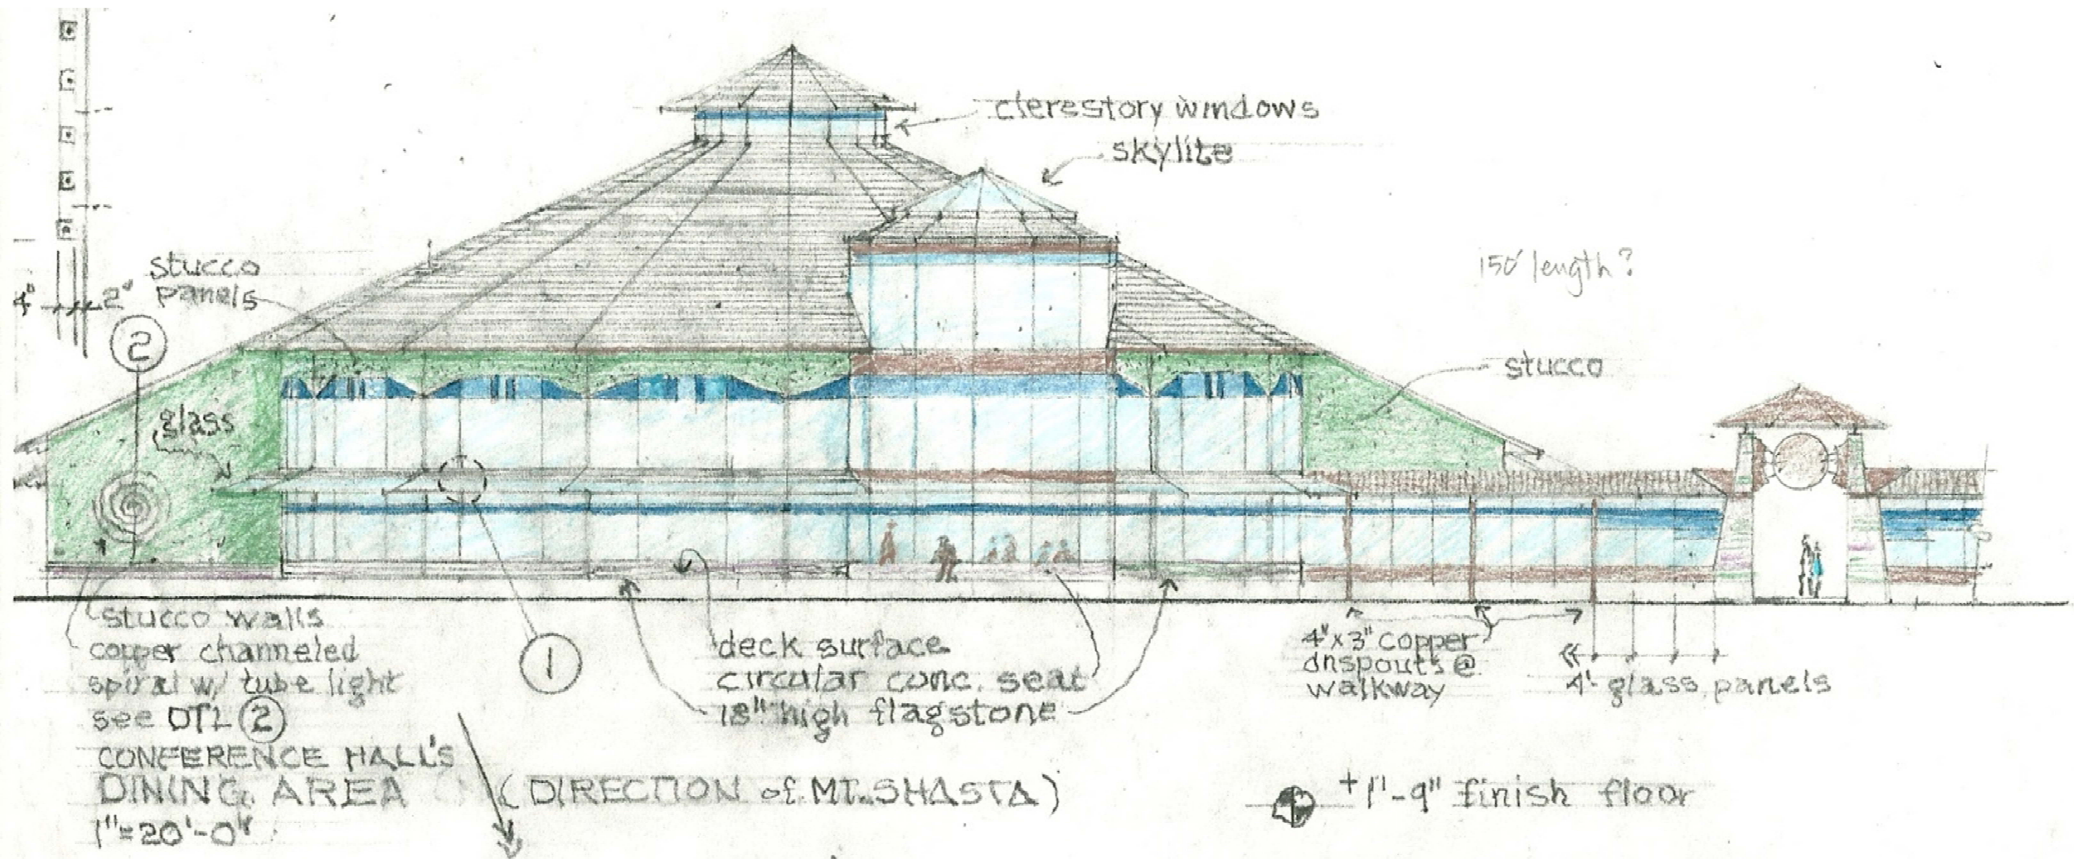 clerestory windows
skylite
150' length?
stucco
panels
4" 2"
2
glass
stucco
stucco walls
copper channeled
spiral w/ tube light
see DTL 2
1
deck surface
circular conc. seat
18" high flagstone
4"x3" copper
dnspouts @
walkway
4' glass panels
CONFERENCE HALL'S
DINING AREA
(DIRECTION of MT. SHASTA)
1"=20'-0"
+1'-9" finish floor